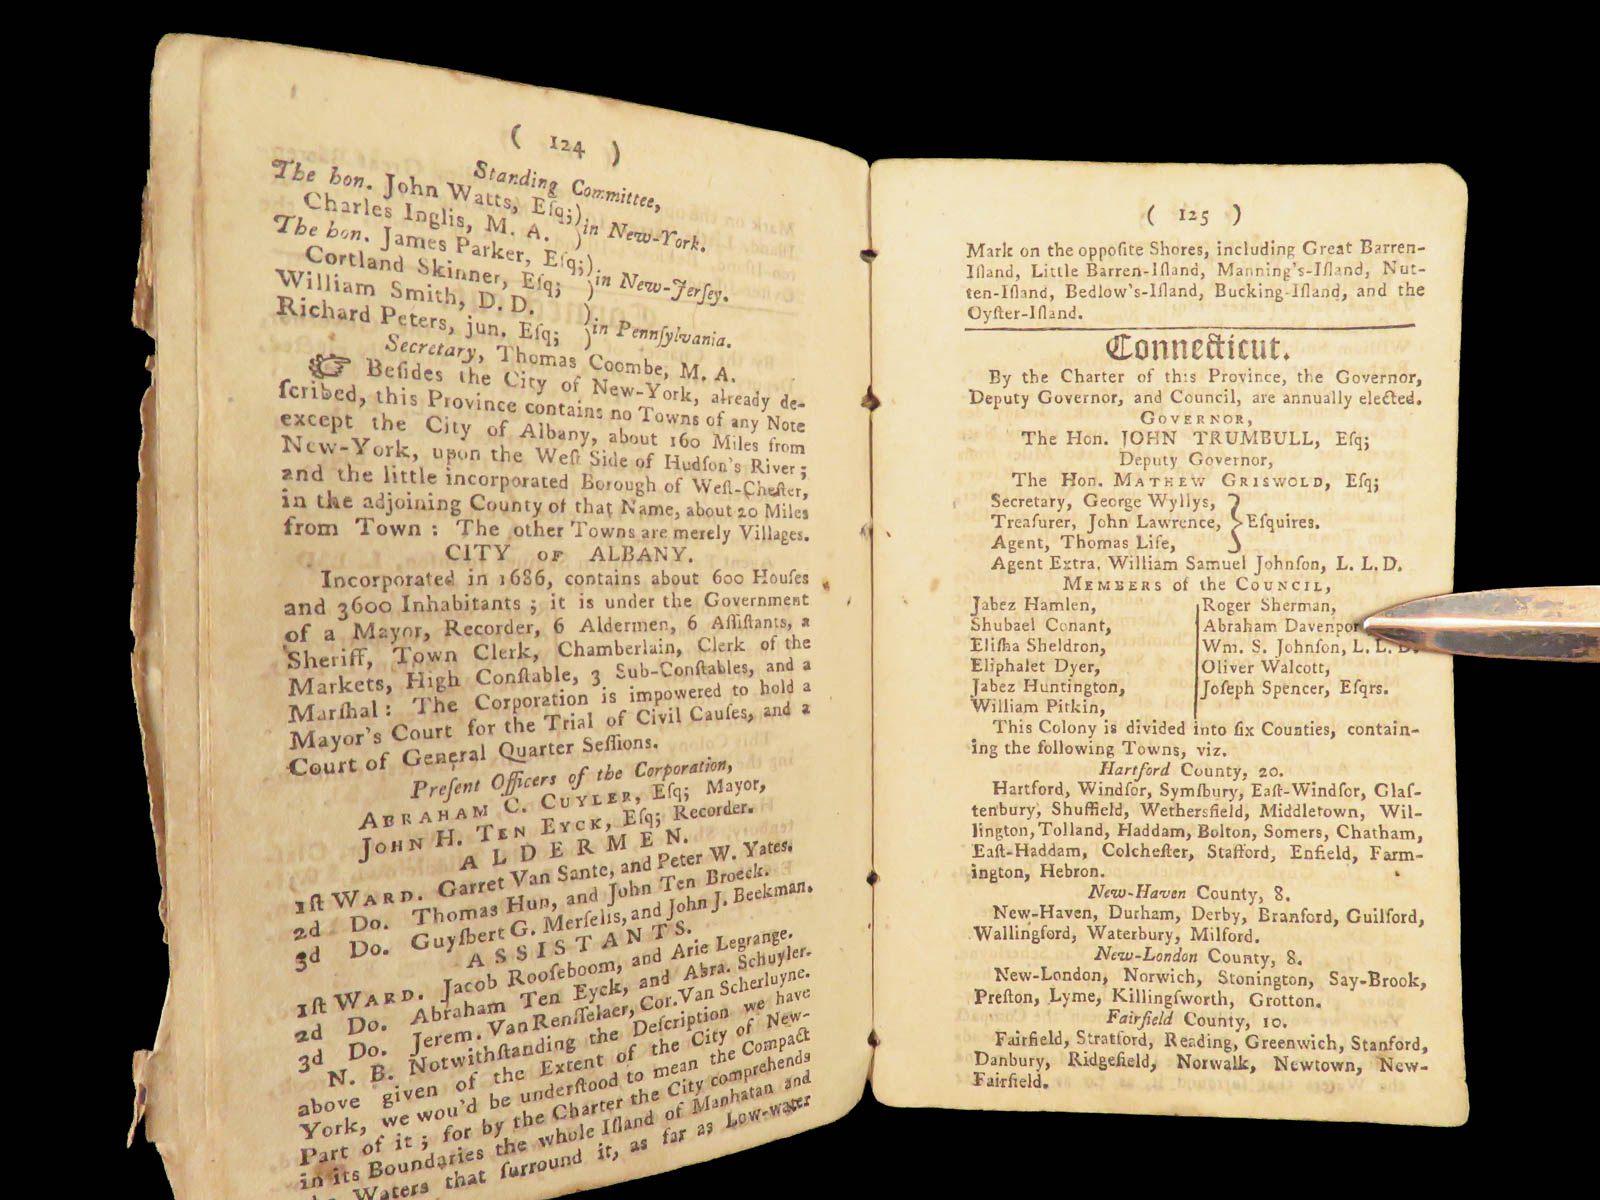 ( 124 )
Standing Committee,
The hon. John Watts, Eſq; } in New-York.
Charles Inglis, M. A.
The hon. James Parker, Eſq; } in New-Jerſey.
Cortland Skinner, Eſq;
William Smith, D. D. } in Pennſylvania.
Richard Peters, jun. Eſq;
Secretary, Thomas Coombe, M. A.
☞ Beſides the City of New-York, already de-
ſcribed, this Province contains no Towns of any Note
except the City of Albany, about 160 Miles from
New-York, upon the Weſt Side of Hudſon's River;
and the little incorporated Borough of Weſt-Cheſter,
in the adjoining County of that Name, about 20 Miles
from Town: The other Towns are merely Villages.
CITY OF ALBANY.
Incorporated in 1686, contains about 600 Houſes
and 3600 Inhabitants; it is under the Government
of a Mayor, Recorder, 6 Aldermen, 6 Aſſiſtants, a
Sheriff, Town Clerk, Chamberlain, Clerk of the
Markets, High Conſtable, 3 Sub-Conſtables, and a
Marſhal: The Corporation is impowered to hold a
Mayor's Court for the Trial of Civil Cauſes, and a
Court of General Quarter Seſſions.
Preſent Officers of the Corporation,
ABRAHAM C. CUYLER, Eſq; Mayor,
JOHN H. TEN EYCK, Eſq; Recorder.
ALDERMEN.
1ſt WARD. Garret Van Sante, and Peter W. Yates.
2d Do. Thomas Hun, and John Ten Broeck.
3d Do. Guyſbert G. Merſelis, and John J. Beekman.
ASSISTANTS.
1ſt WARD. Jacob Rooſeboom, and Arie Legrange.
2d Do. Abraham Ten Eyck, and Abra. Schuyler.
3d Do. Jerem. Van Renſſelaer, Cor. Van Scherluyne.
N. B. Notwithſtanding the Deſcription we have
above given of the Extent of the City of New-
York, we wou'd be underſtood to mean the Compact
Part of it; for by the Charter the City comprehends
in its Boundaries the whole Iſland of Manhatan and
Waters that ſurround it, as far as Low-water
( 125 )
Mark on the oppoſite Shores, including Great Barren-
Iſland, Little Barren-Iſland, Manning's-Iſland, Nut-
ten-Iſland, Bedlow's-Iſland, Bucking-Iſland, and the
Oyſter-Iſland.
Connecticut.
By the Charter of this Province, the Governor,
Deputy Governor, and Council, are annually elected.
GOVERNOR,
The Hon. JOHN TRUMBULL, Eſq;
Deputy Governor,
The Hon. MATHEW GRISWOLD, Eſq;
Secretary, George Wyllys,
Treaſurer, John Lawrence, } Eſquires.
Agent, Thomas Life,
Agent Extra. William Samuel Johnſon, L. L. D.
MEMBERS of the COUNCIL,
Jabez Hamlen,
Shubael Conant,
Eliſha Sheldron,
Eliphalet Dyer,
Jabez Huntington,
William Pitkin,
Roger Sherman,
Abraham Davenpor
Wm. S. Johnſon, L. L. D.
Oliver Walcott,
Joſeph Spencer, Eſqrs.
This Colony is divided into ſix Counties, contain-
ing the following Towns, viz.
Hartford County, 20.
Hartford, Windſor, Symſbury, Eaſt-Windſor, Glaſ-
tenbury, Shuffield, Wethersfield, Middletown, Wil-
lington, Tolland, Haddam, Bolton, Somers, Chatham,
Eaſt-Haddam, Colcheſter, Stafford, Enfield, Farm-
ington, Hebron.
New-Haven County, 8.
New-Haven, Durham, Derby, Branford, Guilford,
Wallingford, Waterbury, Milford.
New-London County, 8.
New-London, Norwich, Stonington, Say-Brook,
Preſton, Lyme, Killingſworth, Grotton.
Fairfield County, 10.
Fairfield, Stratford, Reading, Greenwich, Stanford,
Danbury, Ridgefield, Norwalk, Newtown, New-
Fairfield.